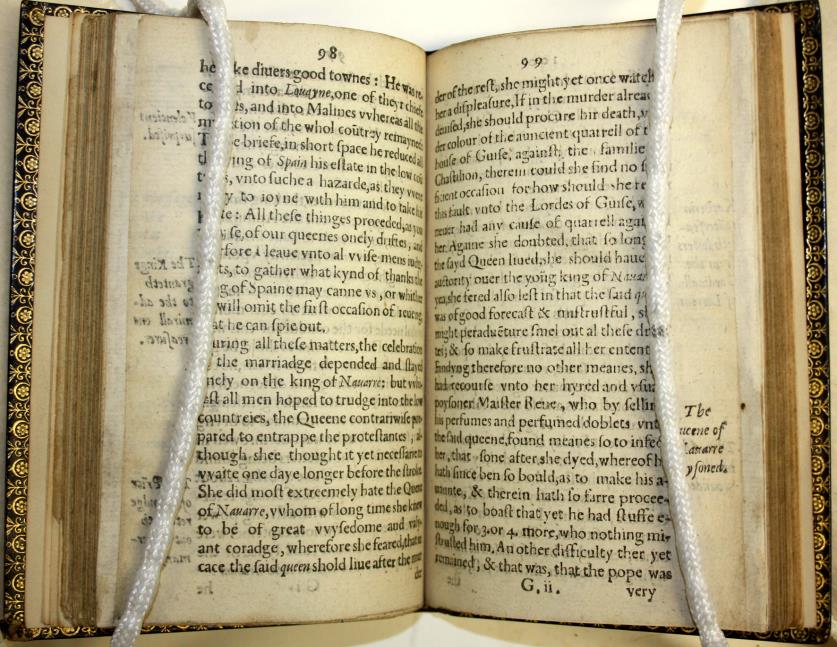 98
ke diuers good townes : He was re-
d into Louayne, one of theyr chiefe
to s, and into Malines vvhereas all the
tion of the whol coũtrey remayned:
briefe, in short space he reduced all
ing of Spain his estate in the low coũ
s, vnto suche a hazarde, as they vvere
y to ioyne with him and to take his
te : All these thinges proceded, as you
se, of our queenes onely driftes, and
fore I leaue vnto al vvise mens iudg-
ts, to gather what kynd of thanks the
g of Spaine may canne vs, or whither
will omit the first occasion of
at he can spie out.
uring all these matters, the celebration
the marriadge depended and stayed
nely on the king of Nauarre: but vvhi-
lest all men hoped to trudge into the low
countreies, the Queene contrariwise pre-
pared to entrappe the protestantes ; al-
though shee thought it yet necessarie to
vvaite one daye longer before the stroke.
She did most extremely hate the Queene
of Nauarre, vvhom of long time she knew
to be of great vvysedome and valy-
ant coradge, wherefore she feared, that in
cace the said queen shold liue after the mur
der
99
der of the rest, she might yet once watch
her a displeasure, If in the murder alrea
deuised, she should procure hir death,
der colour of the auncient quarell of t
house of Guise, against the familie
Chastilion, therein could she find no s
ficient occasion for how should she re
this fault vnto the Lordes of Guise, w
neuer had any cause of quarell agai
her. Againe she doubted, that so long
the sayd Queen liued, she should haue
auctority ouer the yoũg king of Nauar
yea, she fered also lest in that the said qu
was of good forecast & mistrustful, s
might peraduẽture smel out al these dr
tes; & so make frustrate all her entent
Findyng therefore no other meanes, sh
had recourse vnto her hyred and vsu
poysoner Maister Rene, who by sellin
his perfumes and perfumed doblets vnt
the said queene, found meanes so to infec
her, that sone after she dyed, whereof h
hath since ben so bould, as to make his a-
uaunte, & therein hath so farre procee-
ded, as to boast that yet he had stuffe e-
nough for 3. or 4. more, who nothing mi-
strusted him. An other difficulty ther yet
remained, & that was, that the pope was
G. ii. very
The
ueene of
Nauarre
ysoned.